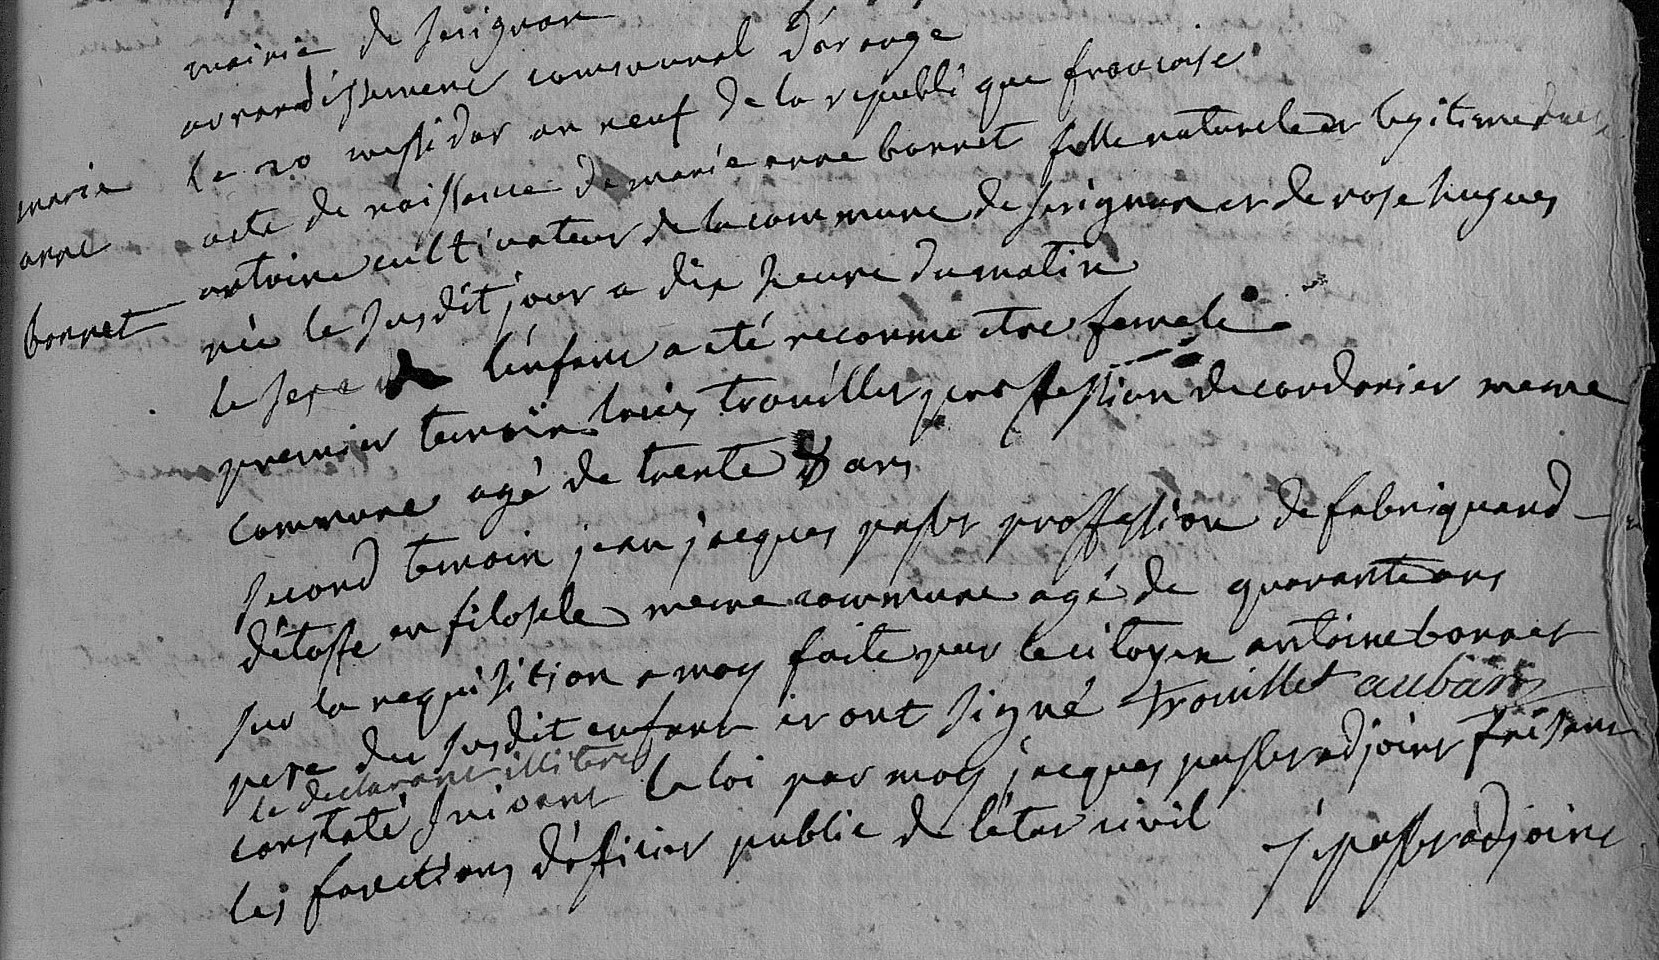 mairie de serignan
arrondissement communal d'orange
le 20 messidor an neuf de la republi que francoise
marie anne bonnet
acte de naissance de marie anne bonnet fille naturele et legitime
antoine cultivateur de la commune de serignan et de rose hugues
née le susdit jour a dix heure du matin
le sexe de l'enfant a eté reconnu etre femele
premier temoin louis trouillet proffession de cordonier meme
commune agé de trente ans
second temoin jean jacques proffession de fabriquand
d'étoffe en filosele meme commune agé de quarante ans
sur la requisition a moy faite par le citoyen antoine bonnet
pere du susdit enfant et ont signé trouillet auban
le declarant illitere
constaté suivant la loi par moy jacques adjoint faisant
les fonctions d'oficier public de l'état civil
adjoint